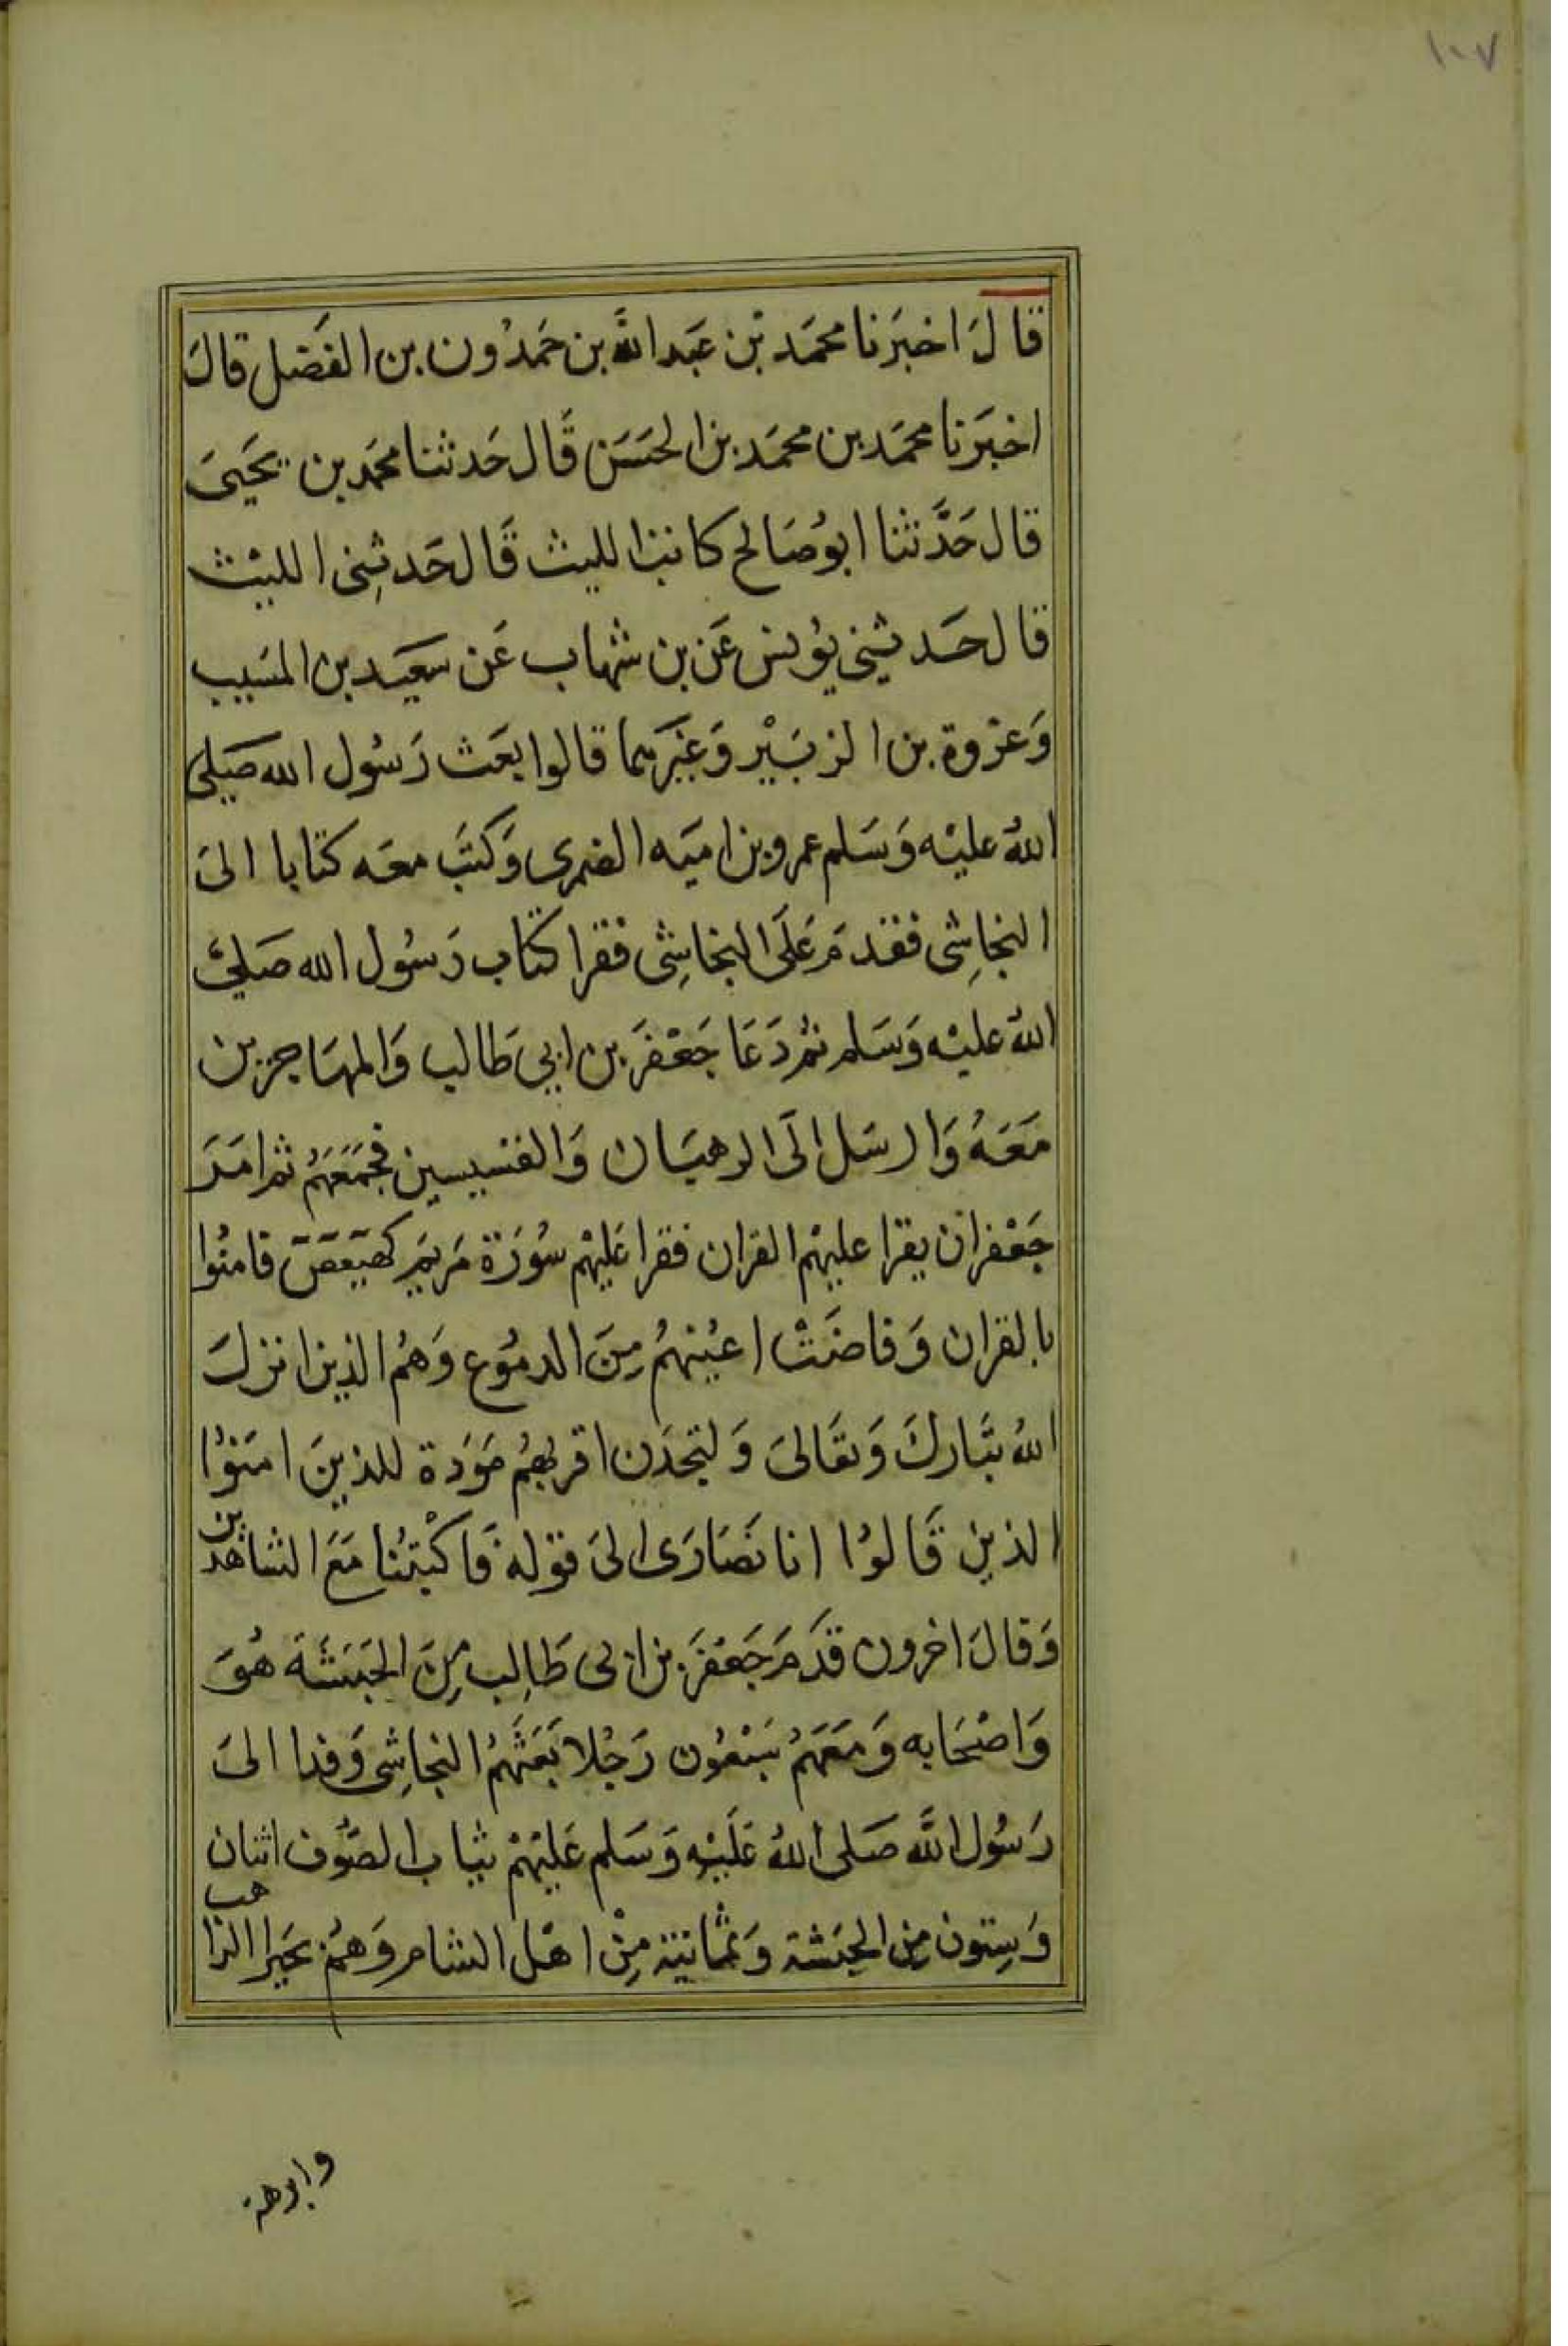 ١٠٧
قالَ اخبَرَنا محمَد بْن عَبَد اللَّه بن حَمدُون بن الفَضل قالَ
اخبَرَنا محمَد بن محمَد بن الحسَن قَال حَدثنا محمَد بن يحَيىَ
قال حَدَّثنا ابوُصَالح كاتب الليث قَال حَدثِنى الليْث
قال حَدثِنى يوُنس عَن بن شهاب عَن سَعيَد بن المسَيب
وَعرْوة بن الزبَيْر وَغَيَرهما قالوا بَعَث رَسُول الله صَلى
اللهُ عليْه وَسَلم عمرو بن اميَه الضمرى وَكتَب معَه كتابا الىَ
النجاشِى فقدمَ عَلَى النجاشِى فقرا كتاب رَسُول الله صَلىَ
اللهُ عليْه وَسَلم ثمُ دَعَا جَعْفَر بن ابي طَالب وَالمهَاجرين
مَعَهُ وَارسَل الَى الرهبَان وَالقسيسين فجمَعَهُم ثم امَر
جَعْفر انَ يقرا عليهْم القران فقرا عَليهْم سُورَة مَريَم كهيَعَصَ فامنُوا
بالقران وَفاضَتْ اعيُنهمُ مِنَ الدموُع وَهمُ الذين انزلَ
اللهُ تبَاركَ وَتعَالىَ وَلتجَدَن اقربهمُ مَوَدة للذينَ امَنوُا
الذين قَالوُا انا نصَارَى الىَ قوَله فَاكْتبُنا مَعَ الشاهدين
وَقالَ اخرون قدَمَ جَعْفَر بن ابى طَالِب مِنَ الحَبَشَة هُوَ
وَاصْحَابه وَمَعَهمُ سَبْعُون رَجُلا بَعَثَهمُ النجاشِى وَفدا الىَ
رَسُول اللَّه صَلى اللهُ عَلَيْه وَسَلم عَليْهمْ ثياب الصُّوف اثنان
وَسِتون مِن الحَبشة وَثمانية مِنْ اهْل الشام وَهمُ بحَيرا الراهب
وابرهة